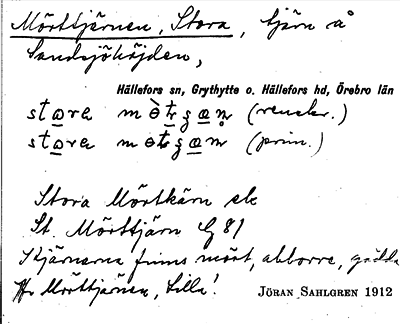 Mörttjärnen, Stora, tjärn å
Sandsjöhöjden,
Hällefors sn, Grythytte o. Hällefors hd, Örebro län
stora
stora
Stora Mörtkärn ek
St. Mörttjärn G 81
I tjärnarna finns mört, abborre, gädda
Mörttjärnen, Lilla!
JÖRAN SAHLGREN 1912